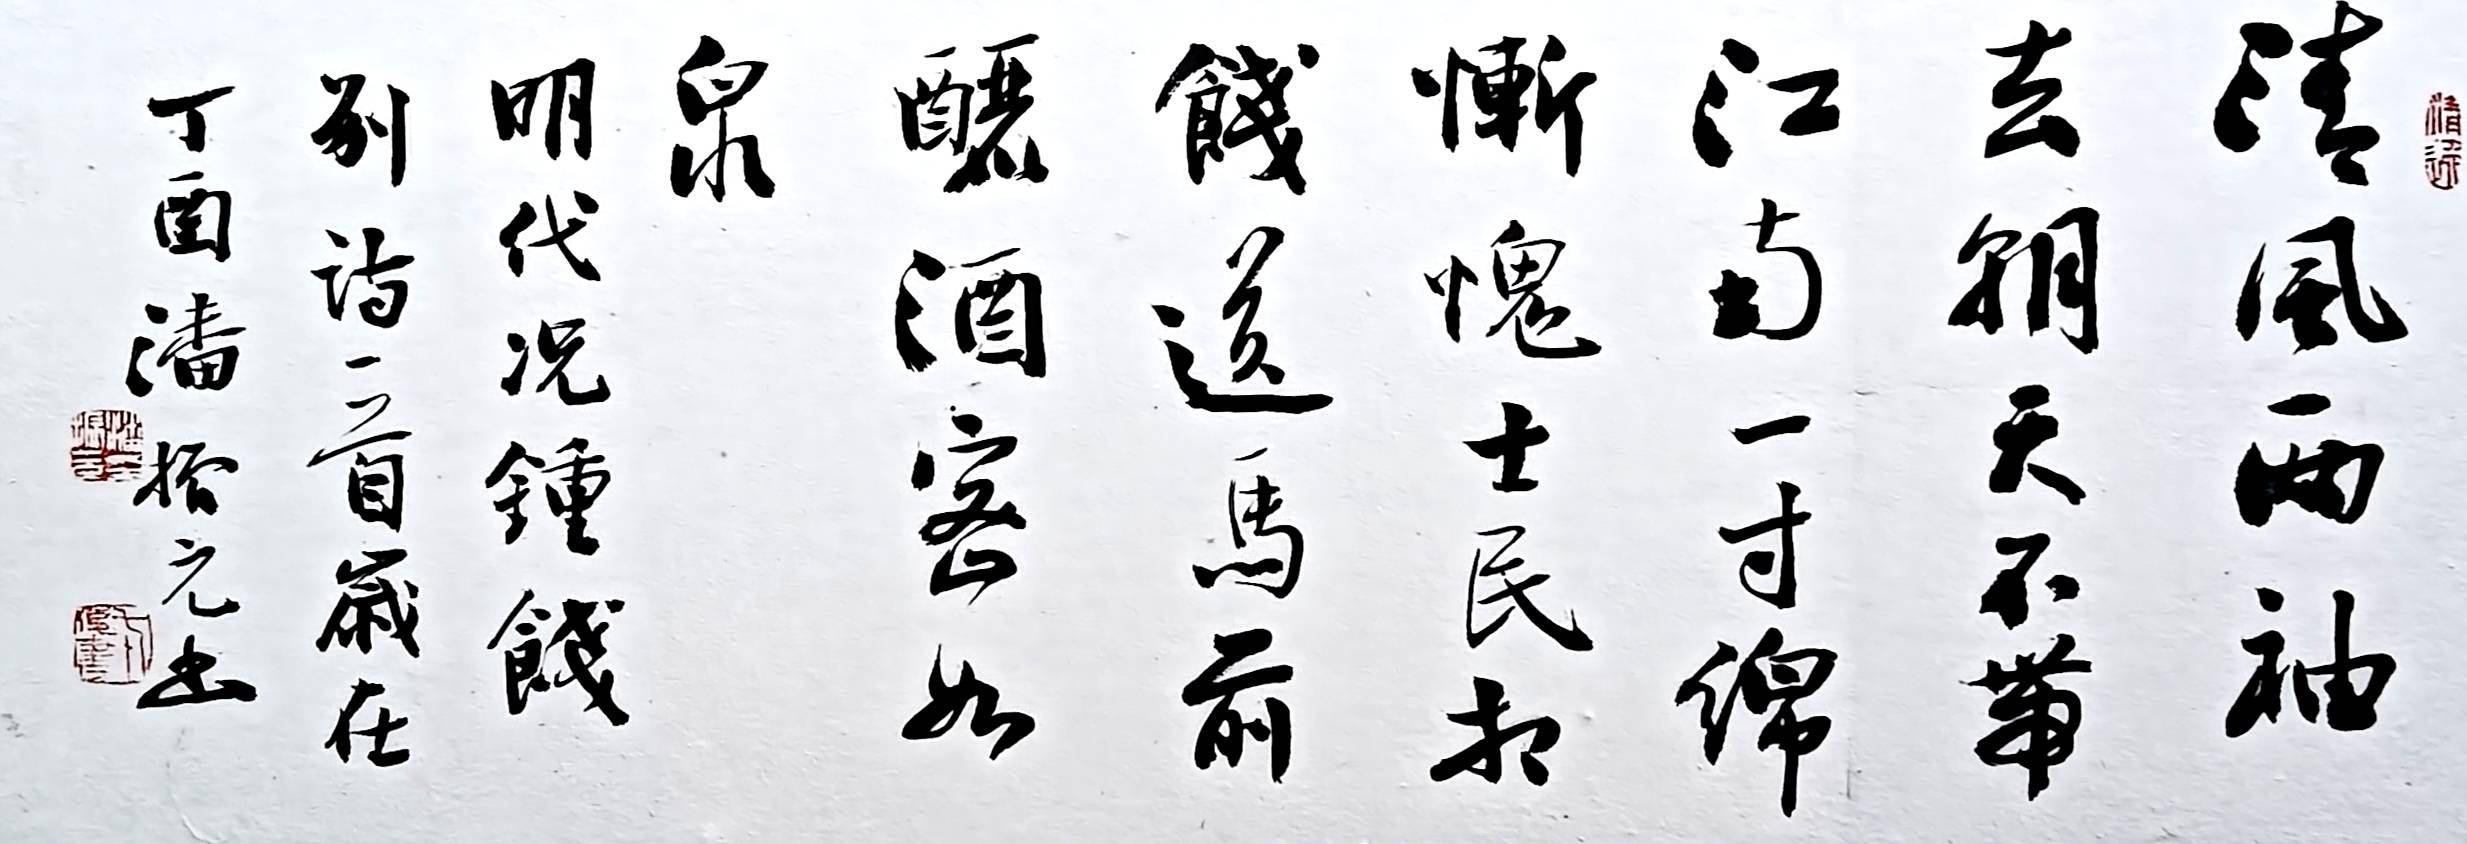 清風两袖
去朝天不帶
江南一寸綿
慚愧士民相
餞送馬前
釃酒密如
泉
明代况鍾餞
别詩一首歲在
丁酉潘拾元書